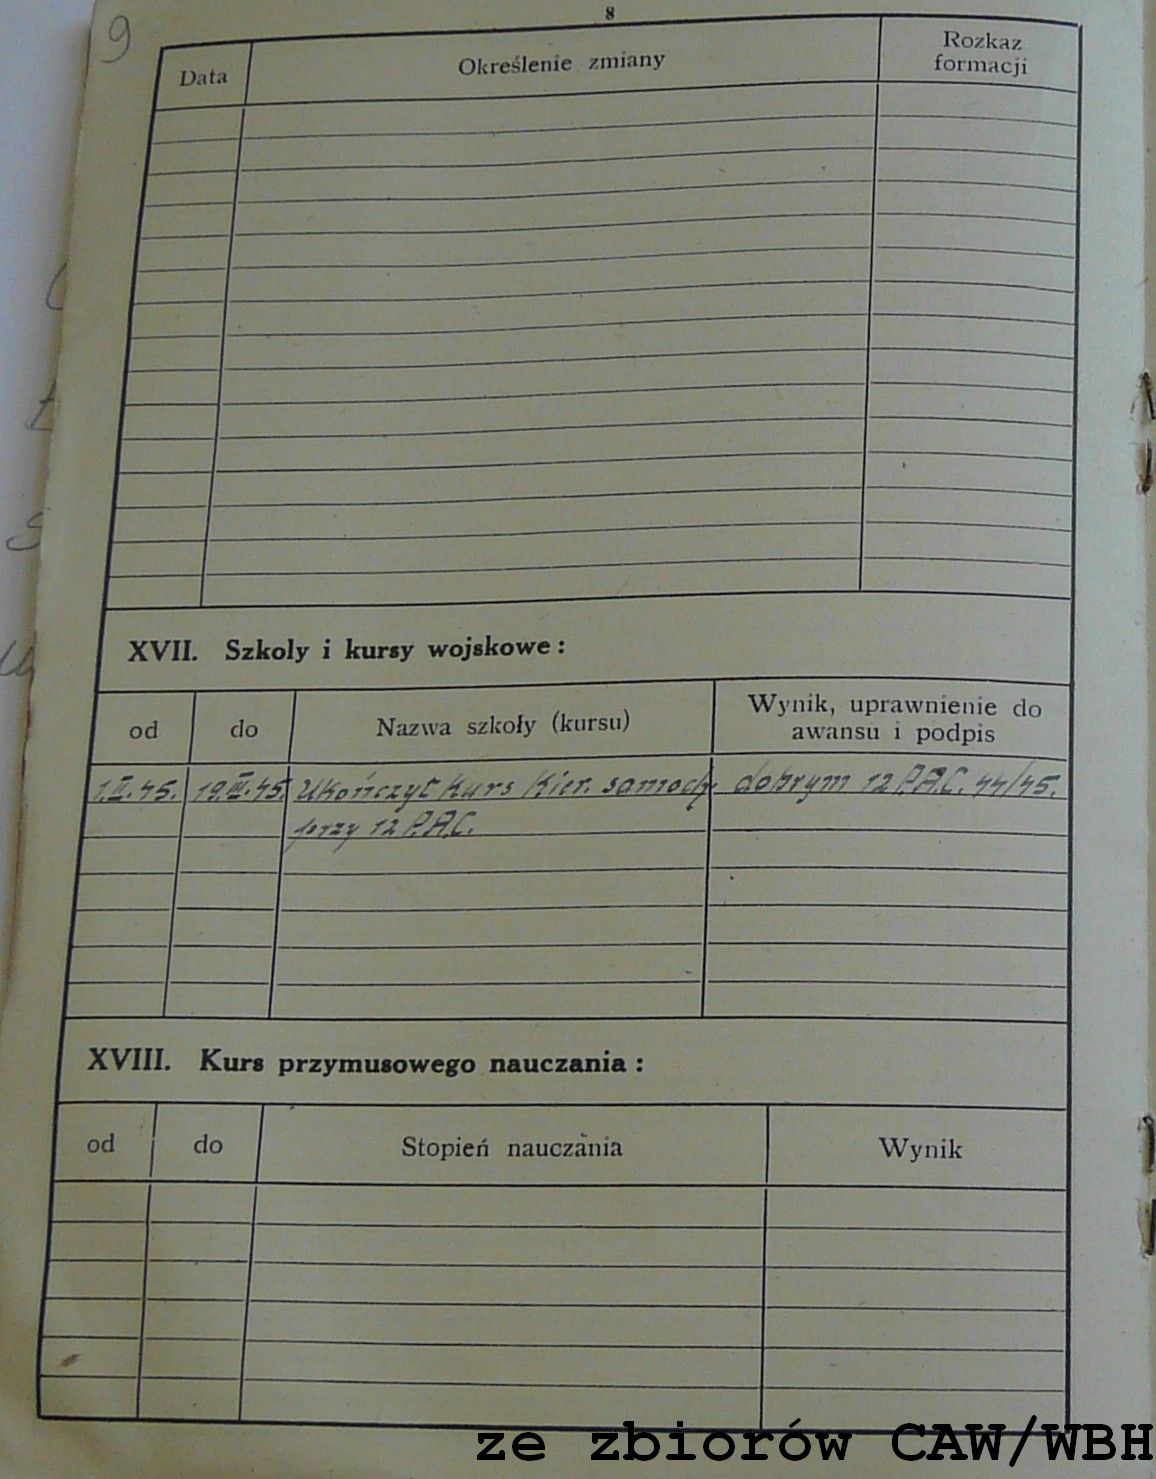 8
9
Data Określenie zmiany Rozkaz formacji
XVII. Szkoły i kursy wojskowe:
od do Nazwa szkoły (kursu) Wynik, uprawnienie do awansu i podpis
1.II.45. 19.III.45. Ukończył Kurs Kier. samoch. dobrym 12 P.A.C. 44/45.
przy 12 P.A.C.
XVIII. Kurs przymusowego nauczania:
od do Stopień nauczania Wynik
ze zbiorów CAW/WBH